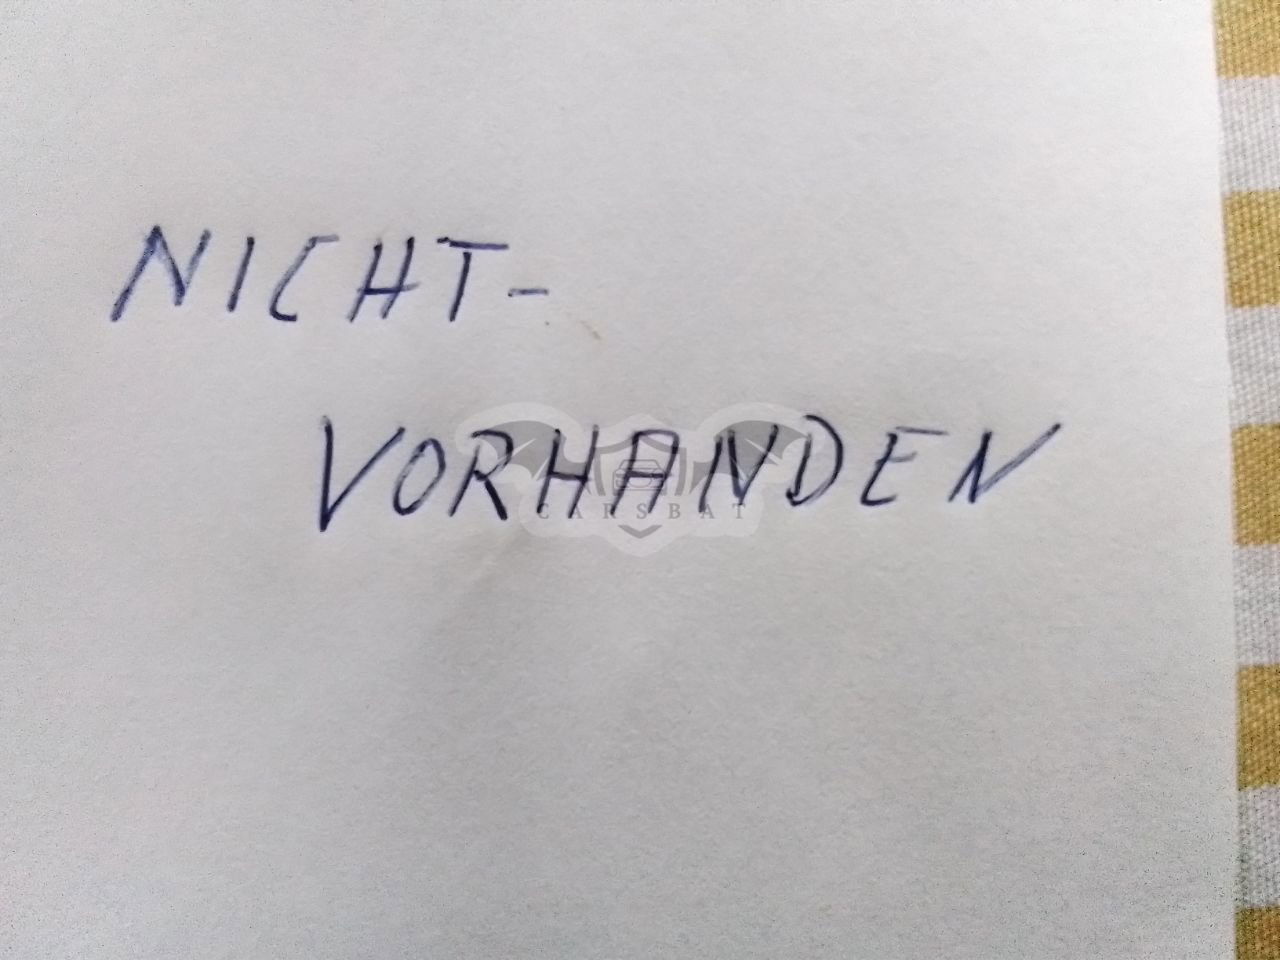 NICHT-
VORHANDEN
CARSBAT